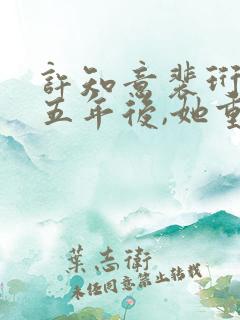 許知意裴珩
五年後,她重
葉志衛
未经同意禁止转载